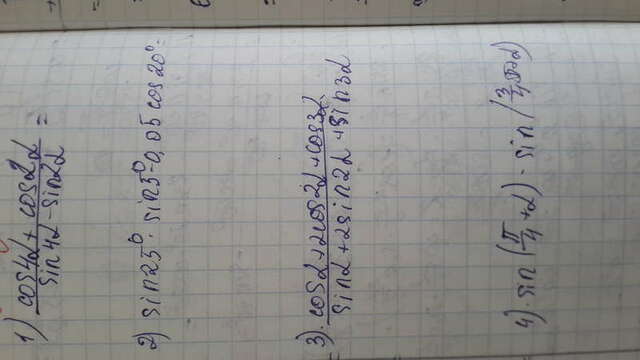 1) cos4α + cos2α / sin4α - sin2α =
2) sin25° · sin5° - 0,05 cos20° =
3). cosα + 2cos2α + cos3α / sinα + 2sin2α + sin3α
4). sin(π/4 + α) · sin(